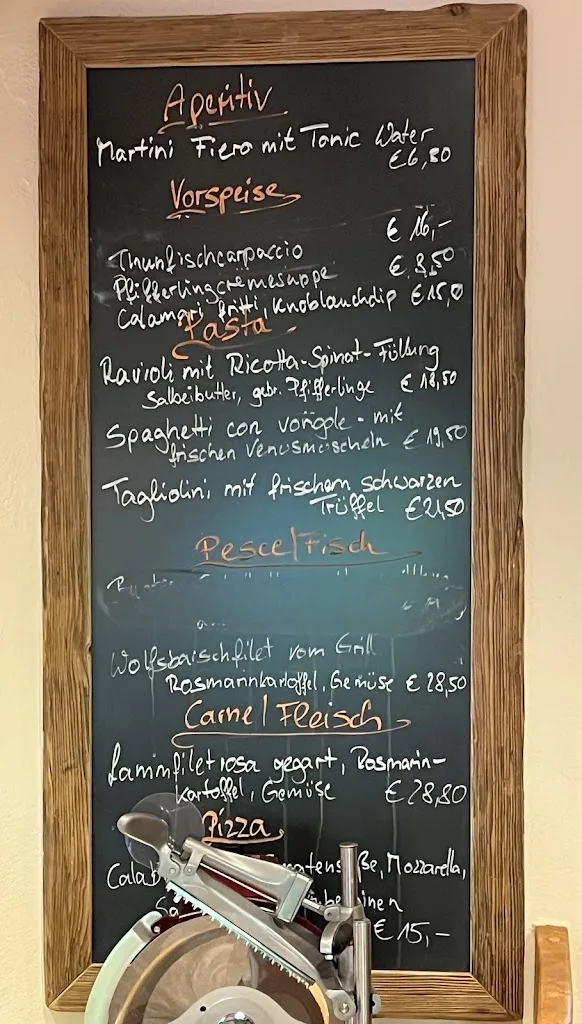 Aperitiv
Martini Fiero mit Tonic Water
€ 6,80
Vorspeise
€ 16,-
Thunfischcarpaccio
Pfifferlingcremesuppe € 8,50
Calamari fritti, Knoblauchdip € 15,0
Pasta
Ravioli mit Ricotta-Spinat-Füllung
Salbeibutter, gebr. Pfifferlinge € 18,50
Spaghetti con vongole - mit
frischen Venusmuscheln € 19,50
Tagliolini mit frischem schwarzen
Trüffel €21,50
Pesce/Fisch
Wolfsbarschfilet vom Grill
Rosmarinkartoffel, Gemüse € 28,50
Carne/Fleisch
Lammfilet rosa gegart, Rosmarin-
kartoffel, Gemüse € 28,80
Pizza
Mozzarella,
€ 15,-